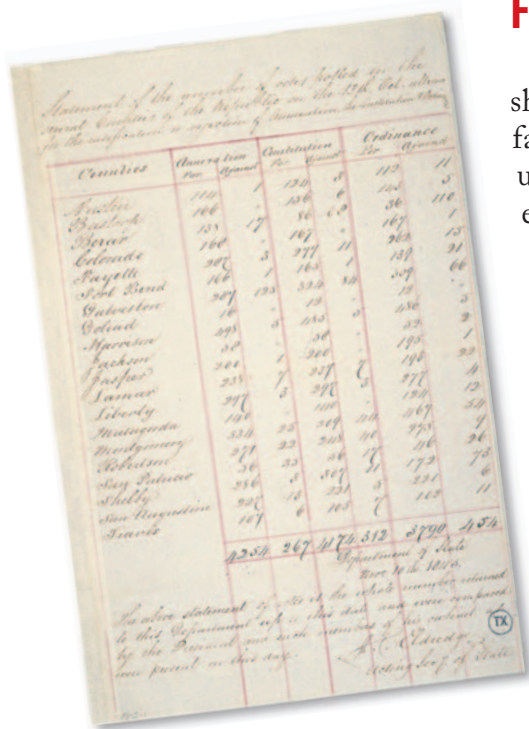 H
sh
fa
u
e
Statement of the number of votes polled in the
several Counties of the Republic on the 13th Oct. ultimo
on the ratification or rejection of Annexation, the Constitution &
Counties Annexation Constitution Ordinance
For Against For Against For Against
Austin 114 1 124 3 112 11
Bastrop 166 - 156 6 145 5
Bexar 138 17 86 62 36 110
Colorado 160 - 167 - 167 1
Fayette 207 3 277 11 262 15
Fort Bend 166 1 165 1 139 21
Galveston 287 123 324 84 339 66
Goliad 16 - 12 - 12 -
Harrison 498 5 485 5 480 5
Jackson 30 - 30 - 32 2
Jasper 200 1 200 - 195 1
Lamar 238 7 237 7 195 22
Liberty 297 3 297 3 277 4
Matagorda 140 - 140 - 124 12
Montgomery 334 25 319 44 467 54
Robertson 271 22 248 40 278 9
San Patricio 36 33 36 17 46 26
Shelby 286 3 307 11 172 73
San Augustine 227 13 221 3 221 6
Travis 107 6 103 7 102 11
4254 267 4174 312 3790 454
Department of State
Nov 10th 1845
The above statement of votes is the whole number returned
to this Department up to this day and were compared
by the President and such members of his cabinet as
were present on this day.
Eldredge
Acting Secy. of State
TX